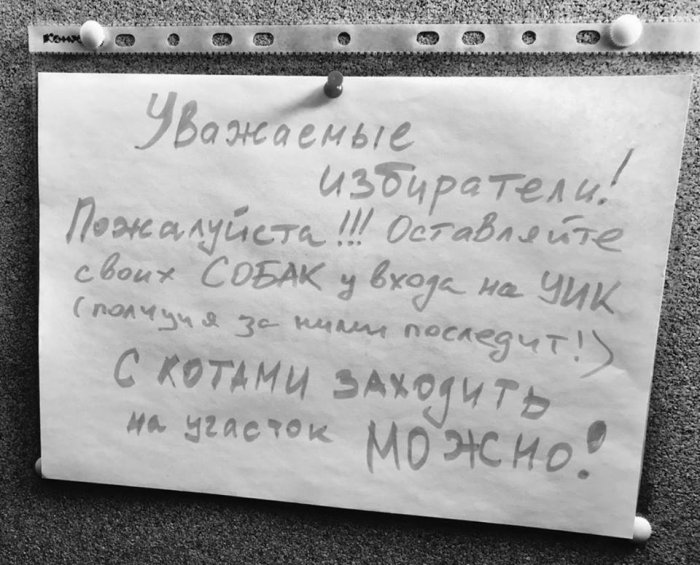 Уважаемые
избиратели!
Пожалуйста!!! Оставляйте
своих СОБАК у входа на УИК
(полиция за ними последит!)
С КОТАМИ ЗАХОДИТЬ
на участок МОЖНО!